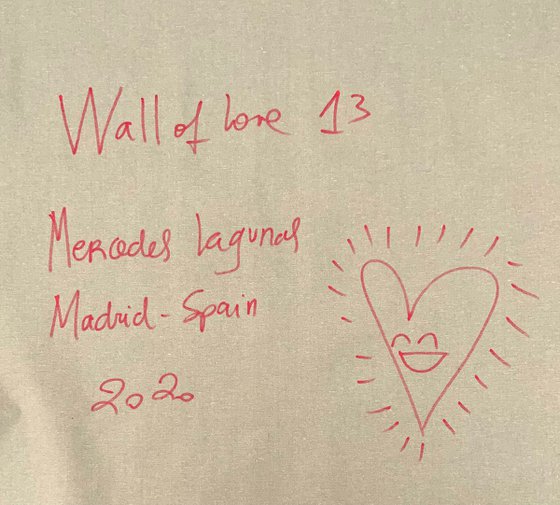 Wall of love 13
Mercedes Lagunas
Madrid - Spain
2020